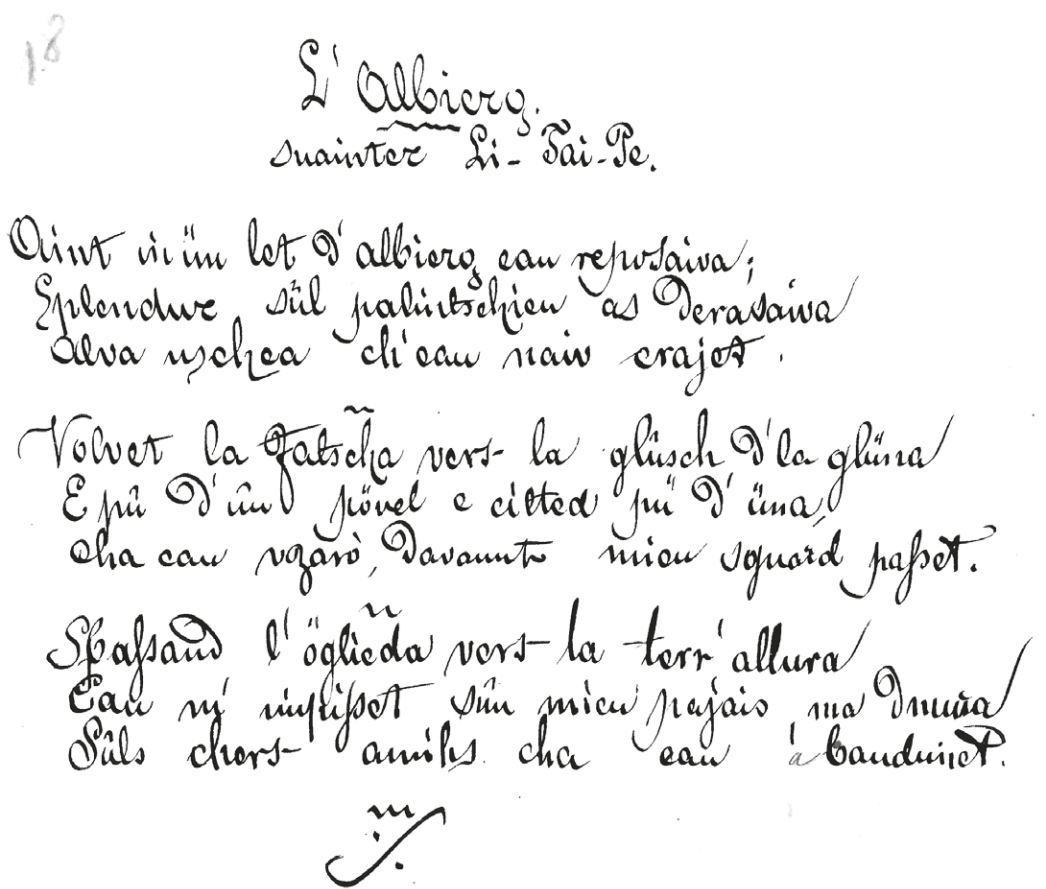 18
L'Albierg.
suainter Li-Tai-Pe.
Aint in ün let d'albierg eau reposaiva;
Splendur sül palintschieu as derasaiva
Alva uschea ch'eau naiv crajet.
Volvet la fatscha vers la glüsch d'la glüna
E pü d'ün pövel e citted pü d'üna,
Cha eau vzarò, davaunt mieu sguard passet.
Sbassand l'öglieda vers la terr'allura
Eau m'impisset sün mieu pajais, ma dmura
Süls chers amihs cha eau abandunet.